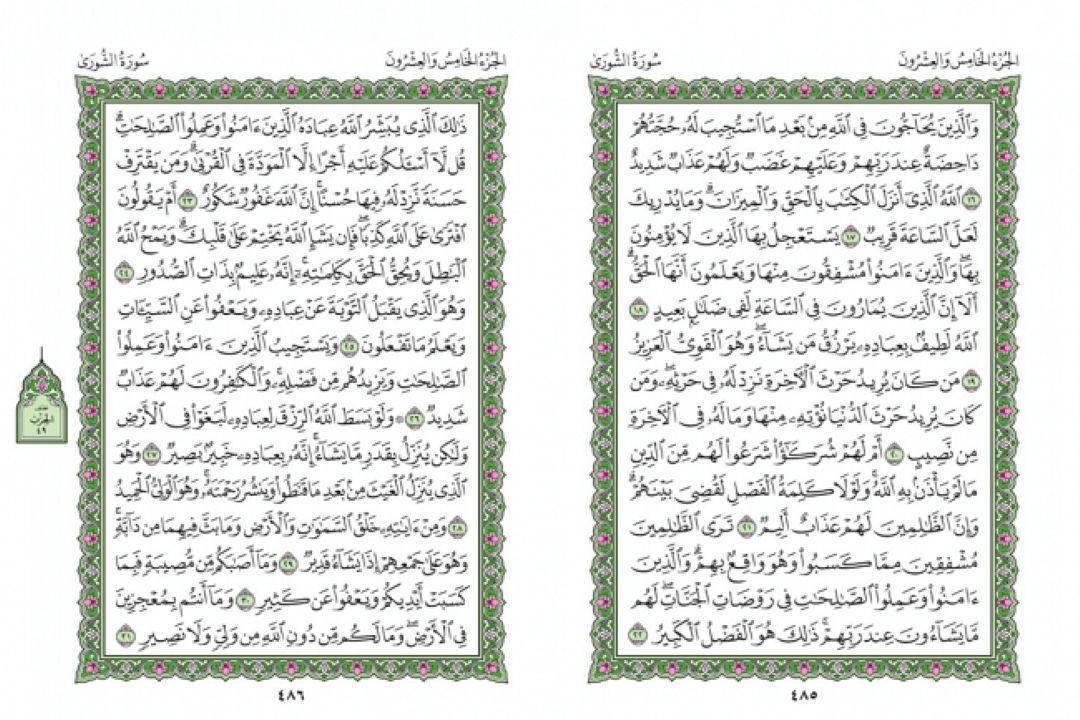 الجزء الخامس والعشرون
سورة الشورى
وَالَّذِينَ يُحَاجُّونَ فِي اللَّهِ مِنْ بَعْدِ مَا اسْتُجِيبَ لَهُ حُجَّتُهُمْ
دَاحِضَةٌ عِندَ رَبِّهِمْ وَعَلَيْهِمْ غَضَبٌ وَلَهُمْ عَذَابٌ شَدِيدٌ
١٦ اللَّهُ الَّذِي أَنزَلَ الْكِتَٰبَ بِالْحَقِّ وَالْمِيزَانَ وَمَا يُدْرِيكَ
لَعَلَّ السَّاعَةَ قَرِيبٌ ١٧ يَسْتَعْجِلُ بِهَا الَّذِينَ لَا يُؤْمِنُونَ
بِهَا وَالَّذِينَ ءَامَنُوا مُشْفِقُونَ مِنْهَا وَيَعْلَمُونَ أَنَّهَا الْحَقُّ
أَلَا إِنَّ الَّذِينَ يُمَارُونَ فِي السَّاعَةِ لَفِي ضَلَٰلٍ بَعِيدٍ ١٨
اللَّهُ لَطِيفٌ بِعِبَادِهِ يَرْزُقُ مَن يَشَاءُ وَهُوَ الْقَوِيُّ الْعَزِيزُ
١٩ مَن كَانَ يُرِيدُ حَرْثَ الْءَاخِرَةِ نَزِدْ لَهُ فِي حَرْثِهِ وَمَن
كَانَ يُرِيدُ حَرْثَ الدُّنْيَا نُؤْتِهِ مِنْهَا وَمَا لَهُ فِي الْءَاخِرَةِ
مِن نَّصِيبٍ ٢٠ أَمْ لَهُمْ شُرَكَٰٓؤُا شَرَعُوا لَهُم مِّنَ الدِّينِ
مَا لَمْ يَأْذَن بِهِ اللَّهُ وَلَوْلَا كَلِمَةُ الْفَصْلِ لَقُضِيَ بَيْنَهُمْ
وَإِنَّ الظَّٰلِمِينَ لَهُمْ عَذَابٌ أَلِيمٌ ٢١ تَرَى الظَّٰلِمِينَ
مُشْفِقِينَ مِمَّا كَسَبُوا وَهُوَ وَاقِعٌ بِهِمْ وَالَّذِينَ
ءَامَنُوا وَعَمِلُوا الصَّٰلِحَٰتِ فِي رَوْضَاتِ الْجَنَّاتِ لَهُم
مَّا يَشَاءُونَ عِندَ رَبِّهِمْ ذَٰلِكَ هُوَ الْفَضْلُ الْكَبِيرُ ٢٢
٤٨٥
الجزء الخامس والعشرون
سورة الشورى
ذَٰلِكَ الَّذِي يُبَشِّرُ اللَّهُ عِبَادَهُ الَّذِينَ ءَامَنُوا وَعَمِلُوا الصَّٰلِحَٰتِ
قُل لَّا أَسْـَٔلُكُمْ عَلَيْهِ أَجْرًا إِلَّا الْمَوَدَّةَ فِي الْقُرْبَىٰ وَمَن يَقْتَرِفْ
حَسَنَةً نَّزِدْ لَهُ فِيهَا حُسْنًا إِنَّ اللَّهَ غَفُورٌ شَكُورٌ ٢٣ أَمْ يَقُولُونَ
افْتَرَىٰ عَلَى اللَّهِ كَذِبًا فَإِن يَشَإِ اللَّهُ يَخْتِمْ عَلَىٰ قَلْبِكَ وَيَمْحُ اللَّهُ
الْبَٰطِلَ وَيُحِقُّ الْحَقَّ بِكَلِمَٰتِهِ إِنَّهُ عَلِيمٌ بِذَاتِ الصُّدُورِ ٢٤
وَهُوَ الَّذِي يَقْبَلُ التَّوْبَةَ عَنْ عِبَادِهِ وَيَعْفُوا عَنِ السَّيِّـَٔاتِ
وَيَعْلَمُ مَا تَفْعَلُونَ ٢٥ وَيَسْتَجِيبُ الَّذِينَ ءَامَنُوا وَعَمِلُوا
الصَّٰلِحَٰتِ وَيَزِيدُهُم مِّن فَضْلِهِ وَالْكَٰفِرُونَ لَهُمْ عَذَابٌ
شَدِيدٌ ٢٦ ۞ وَلَوْ بَسَطَ اللَّهُ الرِّزْقَ لِعِبَادِهِ لَبَغَوْا فِي الْأَرْضِ
وَلَٰكِن يُنَزِّلُ بِقَدَرٍ مَّا يَشَاءُ إِنَّهُ بِعِبَادِهِ خَبِيرٌ بَصِيرٌ ٢٧ وَهُوَ
الَّذِي يُنَزِّلُ الْغَيْثَ مِن بَعْدِ مَا قَنَطُوا وَيَنشُرُ رَحْمَتَهُ وَهُوَ الْوَلِيُّ الْحَمِيدُ
٢٨ وَمِنْ ءَايَٰتِهِ خَلْقُ السَّمَٰوَٰتِ وَالْأَرْضِ وَمَا بَثَّ فِيهِمَا مِن دَابَّةٍ
وَهُوَ عَلَىٰ جَمْعِهِمْ إِذَا يَشَاءُ قَدِيرٌ ٢٩ وَمَا أَصَٰبَكُم مِّن مُّصِيبَةٍ فَبِمَا
كَسَبَتْ أَيْدِيكُمْ وَيَعْفُوا عَن كَثِيرٍ ٣٠ وَمَا أَنتُم بِمُعْجِزِينَ
فِي الْأَرْضِ وَمَا لَكُم مِّن دُونِ اللَّهِ مِن وَلِيٍّ وَلَا نَصِيرٍ ٣١
الحزب
٤٩
٤٨٦